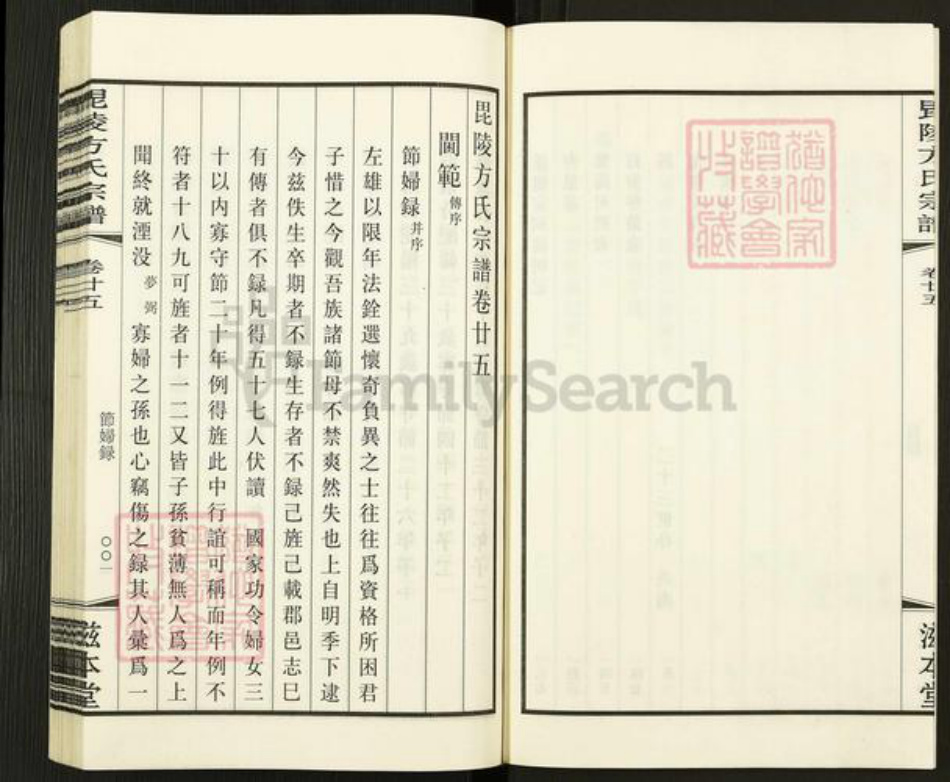 毘陵方氏宗譜
卷廿五
滋本堂
毘陵方氏宗譜卷廿五
閫範 傳序
節婦録 并序
左雄以限年法銓選懷奇負異之士往往爲資格所困君
子惜之今觀吾族諸節母不禁爽然失也上自明季下逮
今兹佚生卒期者不録生存者不録己旌己載郡邑志巳
有傳者俱不録凡得五十七人伏讀 國家功令婦女三
十以内寡守節二十年例得旌此中行誼可稱而年例不
符者十八九可旌者十一二又皆子孫貧薄無人爲之上
聞終就湮没 夢弼 寡婦之孫也心竊傷之録其人彙爲一
毘陵方氏宗譜
卷廿五
節婦録
〇〇一
滋本堂
FamilySearch